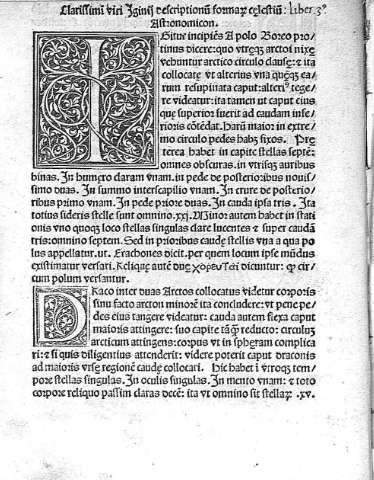 Clarissimi viri Iginij descriptionū formaꝝ cęlestiū: liber 3ᵒ
Astronomicon.
IGitur incipiēs A polo Boreo pro
tinus dicere: quo vtręqȝ arctoi nixę
vehuntur arctico circulo clausę: & ita
collocatę vt alterius vna quęqȝ ea-
rum resupinata caput: alteriˀ tege-
re videatur: ita tamen ut caput eius
quę superior fuerit ad caudam infe-
rioris cōtēdat. Harū maior in extre/
mo circulo pedes habȝ fixos. Prę
terea habet in capite stellas septē:
omnes obscuras. in vtrisqȝ auribus
binas. In humero claram vnam. in pede de posterioribus nouis-
simo duas. In summo interscapilio vnam. In crure de posterio/
ribus primo vnam. In pede priore duas. In cauda ipsa tris. Ita
totius sideris stelle sunt omnino .xxj. Minor autem habet in stati
onis vno quoqȝ loco stellas singulas clare lucentes & super caudā
tris: omnino septem. Sed in prioribus caudę stellis vna a qua po
lus appellatur. ut. Erachones dicit. per quem locum ipse mūdus
existimatur versari. Reliquę autē duę χορευταί dicuntur: φ cir-
cum polum versantur.
DRaco inter duas Arctos collocatus videtur corporis
sinu facto arcton minorē ita concludere: vt pene pe/
des eius tangere videatur: cauda autem flexa caput
maioris attingere: suo capite tāqȝ reducto: circulūȝ
arcticum attingens: corpus vt in spheram complica
ri: & si quis diligentius attenderit: videre poterit caput draconis
ad maioris vrsę regionē caudę collocari. Hic habet ī vtroqȝ tem/
pore stellas singulas. In oculis singulas. In mento vnam: & toto
corpore reliquo passim claras decē: ita vt omnino sīt stellaꝝ .xv.